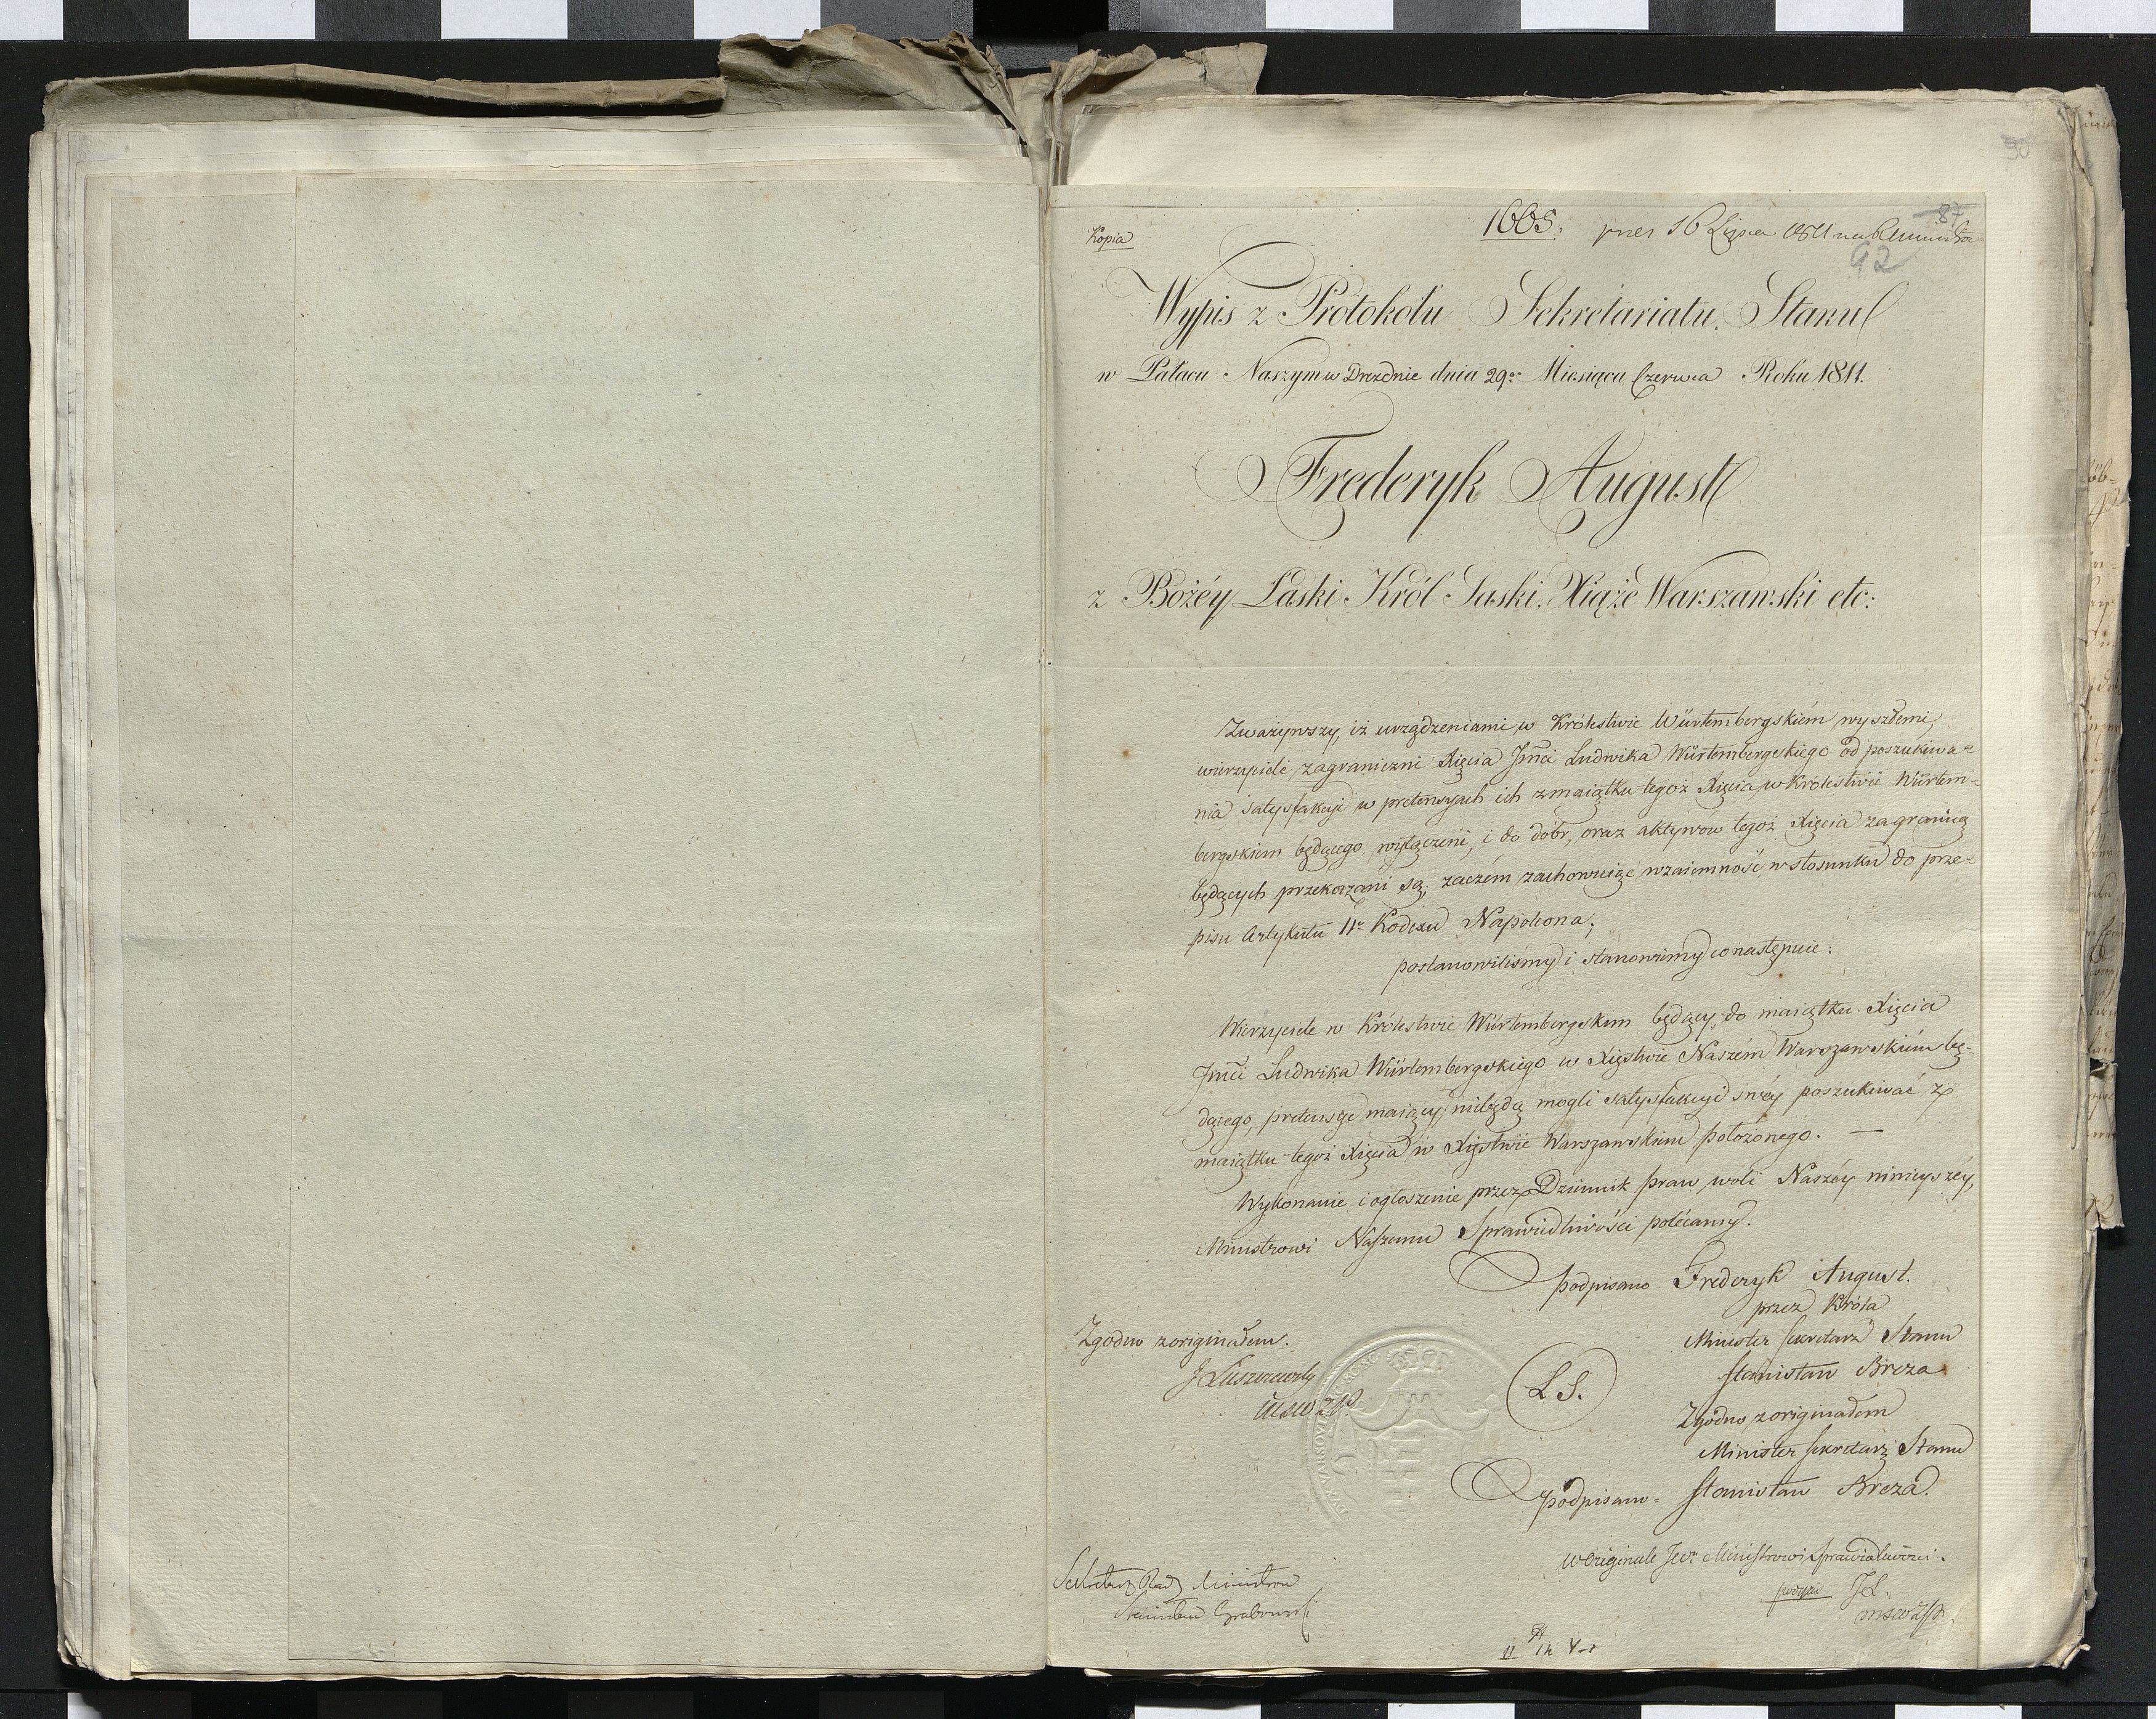 90
Kopia
1665.
87
16 Lipca 1811 na R. Ministrów
92
Wypis z Protokołu Sekretariatu Stanu
w Pałacu Naszym w Dreźdnie dnia 29go Miesiąca Czerwca Roku 1811.
Fryderyk August
z Bożéy Łaski Król Saski, Xiąże Warszawski etc:
Zważywszy, iż urządzeniami w Królestwie Würtembergskiém wyszłemi,
wierzyciele zagraniczni Xięcia Jmci Ludwika Würtembergskiego od poszukiwa-
nia satysfakcyi w pretensyach ich z maiątku tegoż Xięcia w Królestwie Würtem-
bergskiem będącego wyłączeni, i do dóbr, oraz aktywów tegoż Xięcia za granicą
będących przekazani są; zaczém zachowuiąc wzaiemność w stosunku do prze-
pisu Artykułu 11o Kodexu Napoleona;
postanowiliśmy i stanowimy co następuie:
Wierzyciele w Królestwie Würtembergskim będący, do maiątku Xięcia
Jmci Ludwika Würtembergskiego w Xięstwie Naszém Warszawskiém bę-
dącego, pretensye maiący, niebędą mogli satysfakcyi swéy poszukiwać z
maiątku tegoż Xięcia w Xięstwie Warszawskiem położonego. —
Wykonanie i ogłoszenie przez Dziennik praw woli Naszéy ninieyszéy,
Ministrowi Naszemu Sprawiedliwości polécamy.
podpisano Fryderyk August.
przez Króla
Minister Sekretarz Stanu
Stanisław Breza
Zgodno z originałem.
J Łuszczewski
L.S.
Zgodno z originałem
Minister Sekretarz Stanu
podpisano. Stanisław Breza.
w Originale JW. Ministrowi Sprawiedliwości.
podpis JŁ.
Sekretarz Rady Ministrów
Stanisław Grabowski